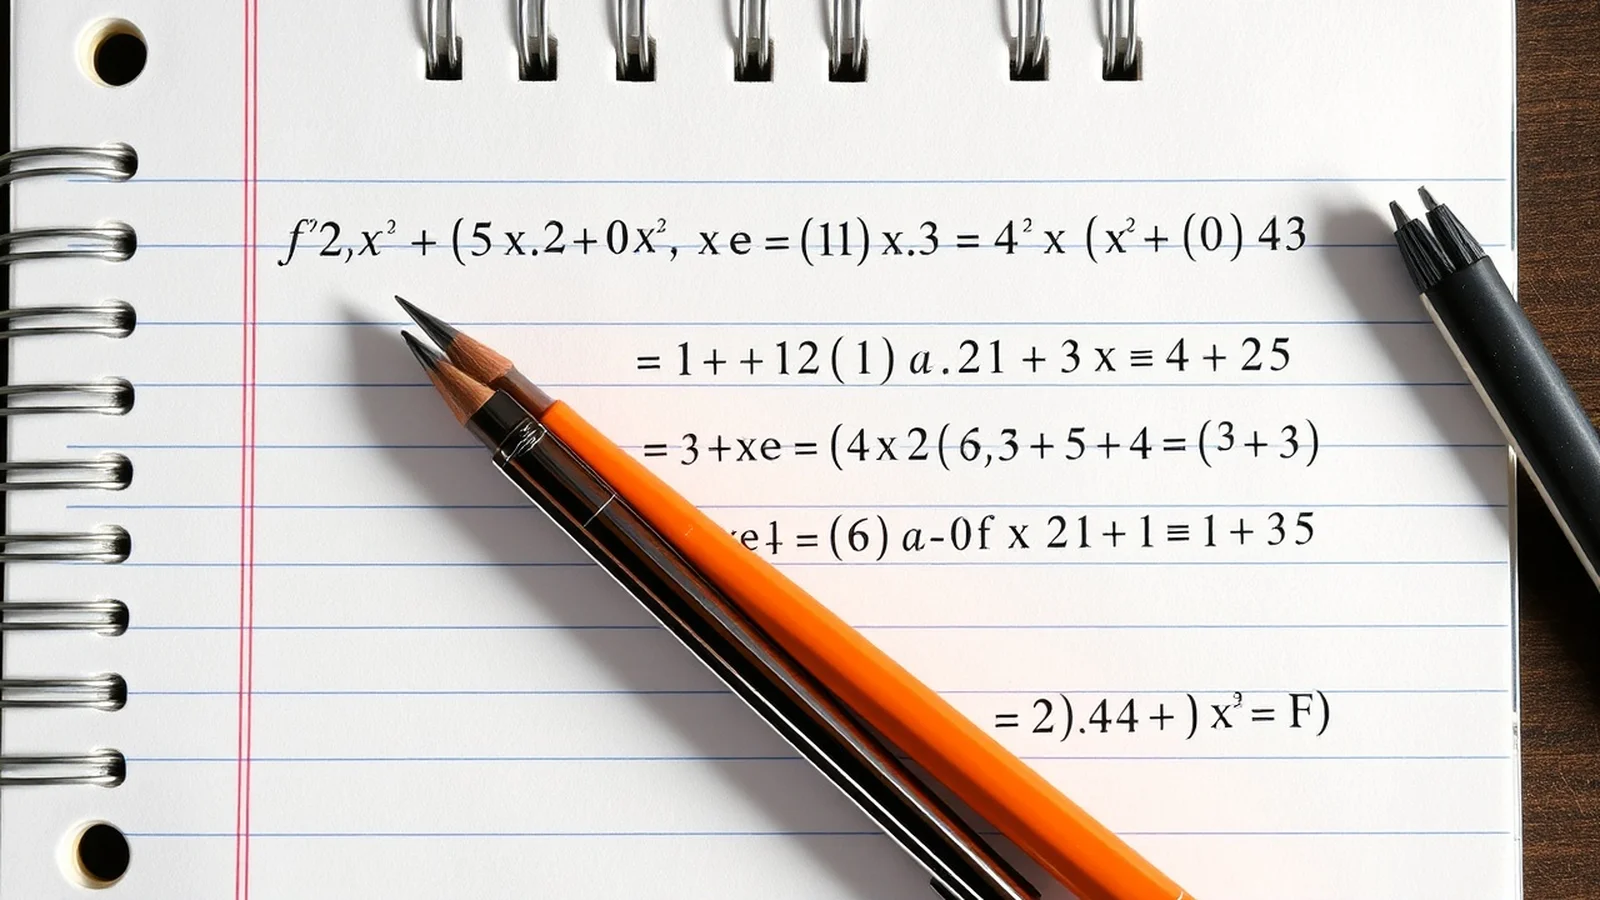 f’2,x² + (5 x.2+0x², x e = (11) x.3 = 4² x (x² + (0) 43
= 1+ +12 (1) a.21 + 3 x ≡ 4 + 25
= 3+xe = (4x2(6,3+5+4=(3+3)
= (6) a-0f x 21+1 ≡ 1+35
= 2).44+) x³ = F)